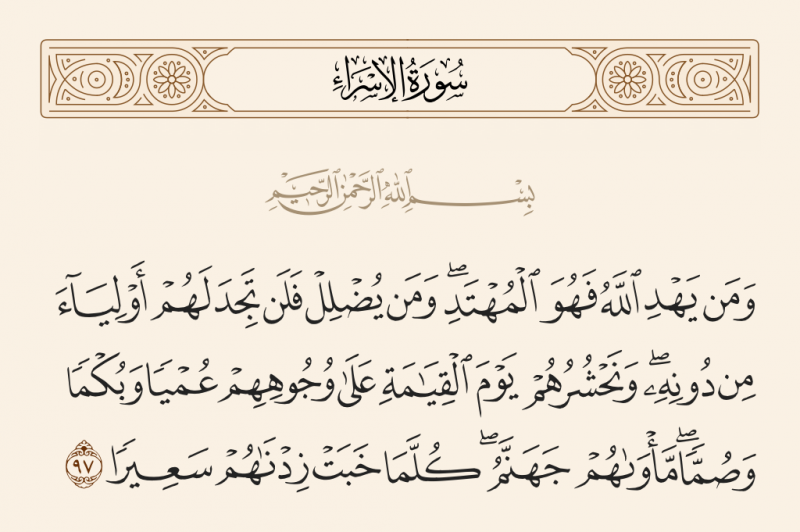 سُورَةُ الإِسْرَاءِ
بِسْمِ ٱللَّهِ ٱلرَّحْمَٰنِ ٱلرَّحِيمِ
وَمَن يَهْدِ ٱللَّهُ فَهُوَ ٱلْمُهْتَدِۖ وَمَن يُضْلِلْ فَلَن تَجِدَ لَهُمْ أَوْلِيَآءَ
مِن دُونِهِۦۖ وَنَحْشُرُهُمْ يَوْمَ ٱلْقِيَٰمَةِ عَلَىٰ وُجُوهِهِمْ عُمْيًا وَبُكْمًا
وَصُمًّاۖ مَّأْوَىٰهُمْ جَهَنَّمُۖ كُلَّمَا خَبَتْ زِدْنَٰهُمْ سَعِيرًا ٩٧